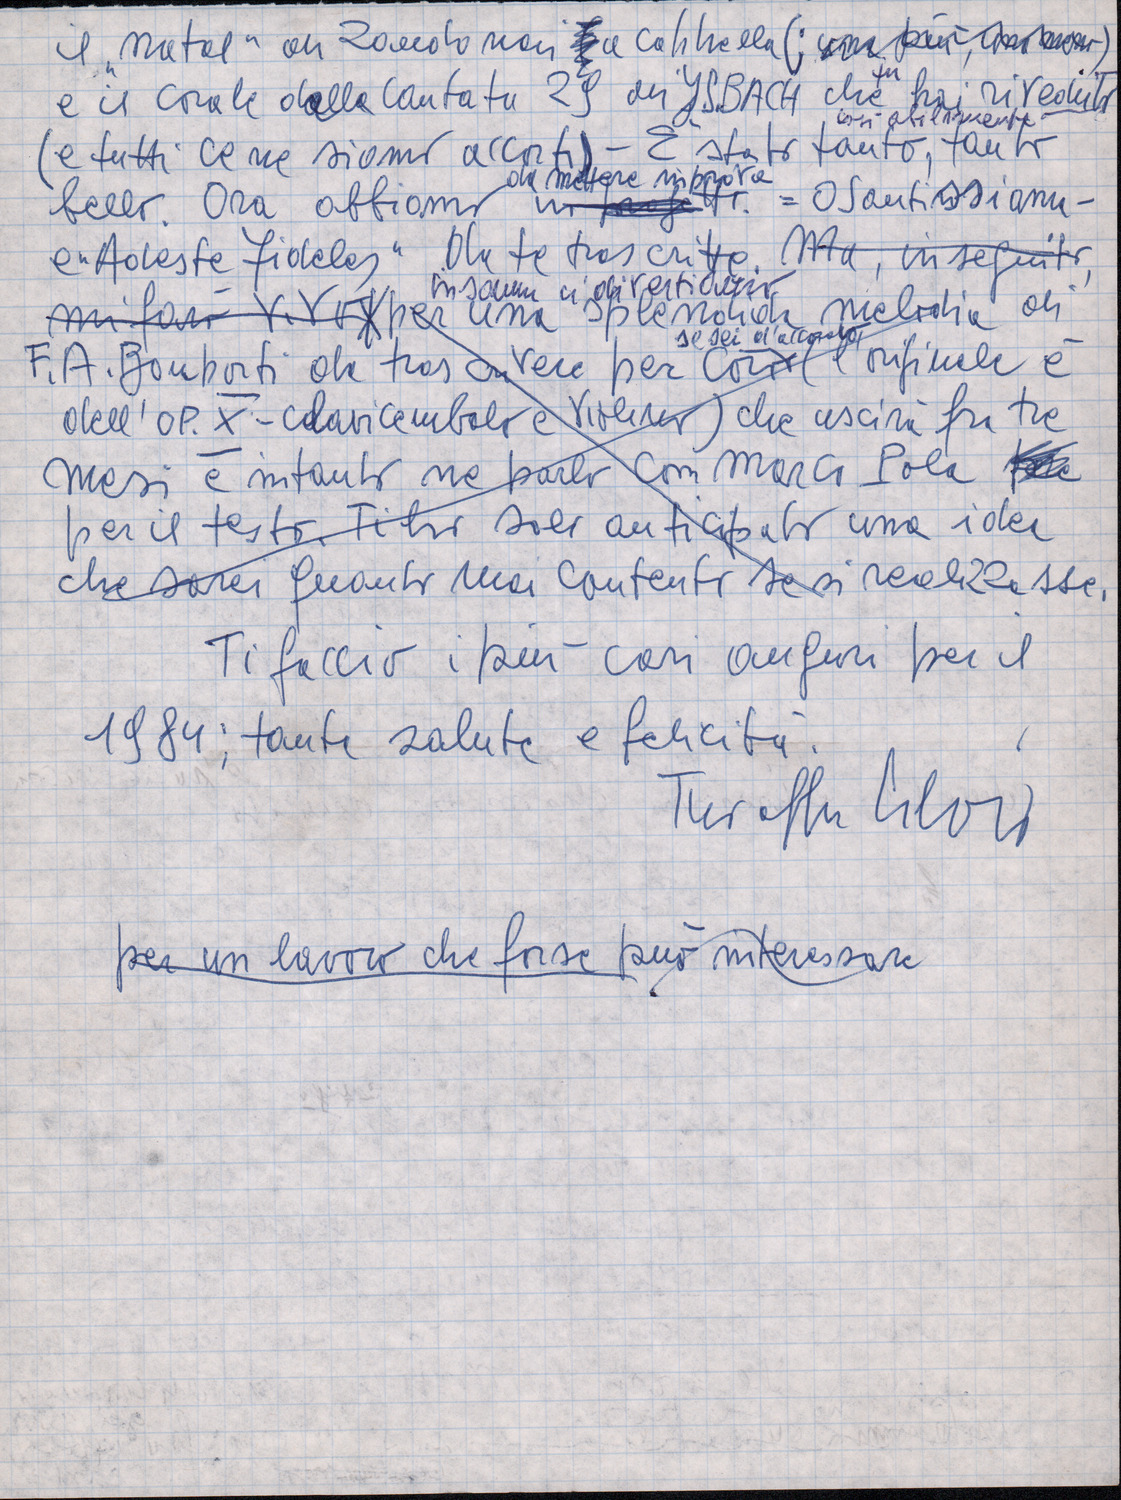 il "Natal" di Zandonai a cappella (; una più,
e il corale della Cantata 29 di J.S.BACH che tu hai riveduto
così abilmente
(e tutti ce ne siamo accorti) – È stato tanto, tanto
da mettere in prova
bello. Ora abbiamo in = O Santissima –
e "Adeste fideles" da te trascritte. Ma, in seguito,
insomma ci divertiamo
mi farò vivo per una splendida melodia di
se sei d'accordo
F.A. Bonporti da trascrivere per Coro (l'originale è
dell'OP. X – clavicembalo e violino) che uscirà fra tre
mesi e intanto ne parlo con Marco Pola
per il testo. Ti ho solo anticipato una idea
che sarei quanto mai contento se si realizzasse.
Ti faccio i più cari auguri per il
1984; tante salute e felicità.
Tuo aff.mo
per un lavoro che forse può interessare